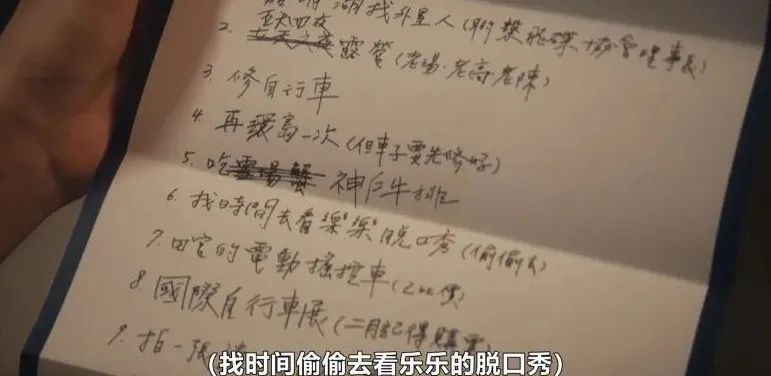 湖找外星人(聯繫飛碟協會理事長)
2. 五天四夜露營(老楊.老高.老陳)
3. 修自行車
4. 再環島一次(但車子要先修好)
5. 吃雪場蟹 神戶牛排
6. 找時間去看樂樂脫口秀(偷偷去)
7. 田宮的電動搖控車(已比價)
8. 國際自行車展(二月記得購票)
9. 拍一張
(找时间偷偷去看乐乐的脱口秀)